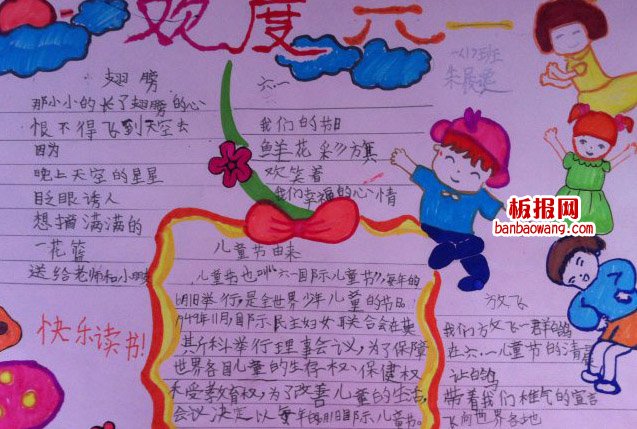 欢度六一
六(1)班
翅膀
那小小的长了翅膀的心
恨不得飞到天空去
因为
晚上天空的星星
眨眼诱人
想摘满满的
一花篮
送给老师和小朋友
快乐读书!
六.一
我们的节日
鲜花彩旗
欢笑着
我们幸福的心情
板报网
banbaowang.com
儿童节由来
儿童节也叫"六一国际儿童节",每年的
6月1日举行,是全世界少年儿童的节日。
1949年11月,国际民主妇女联合会在莫
斯科举行理事会议,为了保障
世界各国儿童的生存权、保健权
和受教育权,为了改善儿童的生活,
会议决定以每年的6月1日为国际儿童节。
放飞
我们放飞一群白鸽
在六.一儿童节的清晨
让白鸽
带着我们稚气的宣言
飞向世界各地